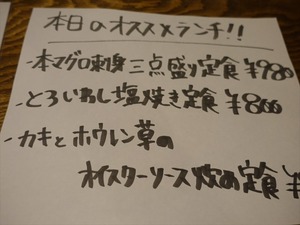 本日のオススメランチ!!
-本マグロ刺身三点盛り定食 ¥980
-とろいわし塩焼き定食 ¥800
-カキとホウレン草の
オイスターソース炒め定食 ¥